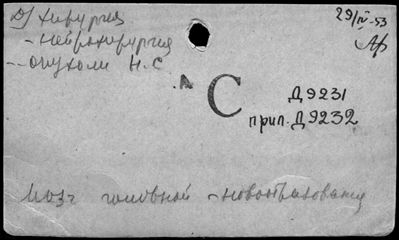 Д) хирургия
29/IV-53
- нейрохирургия
-- опухоли Н.С
С
Д9231
прил. Д9232
Мозг головной - новообразования